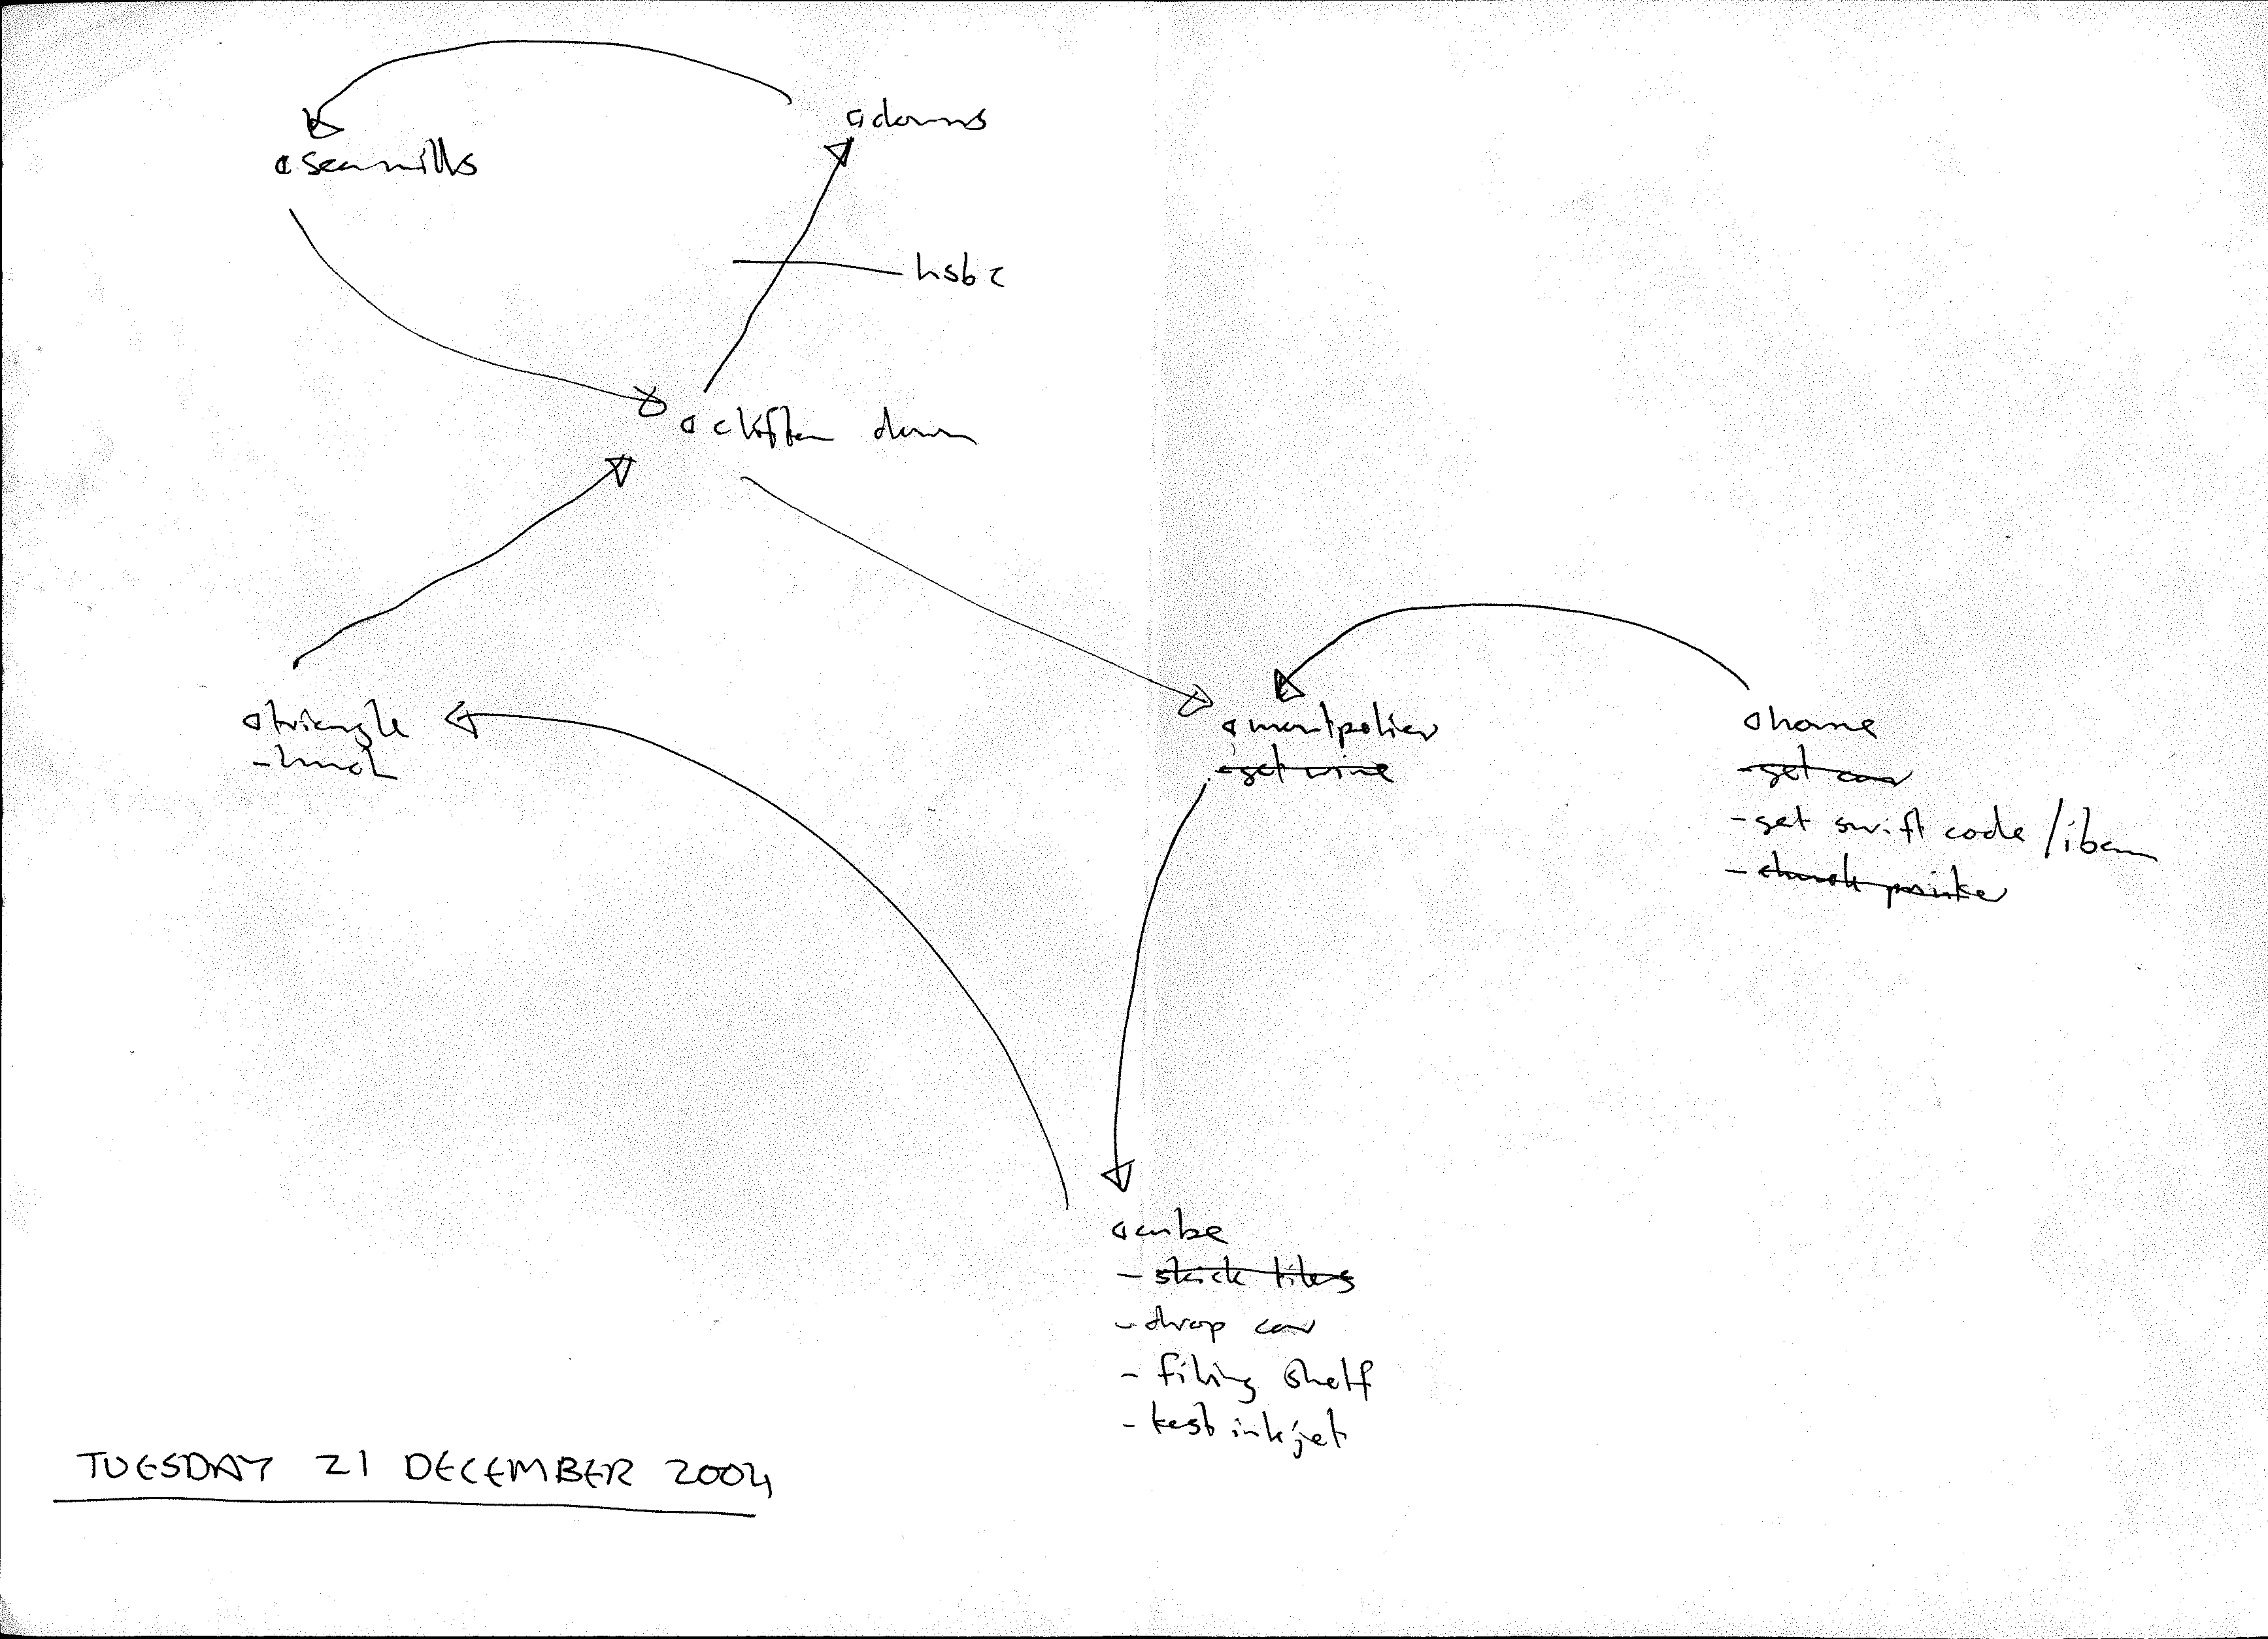 downs
seamills
hsbc
clifton down
triangle
- lunch
montpelier
- get wine
home
- get car
- get swift code / iban
- chuck printer
cube
- stick tiles
- drop car
- filing shelf
- test inkjet
TUESDAY 21 DECEMBER 2004